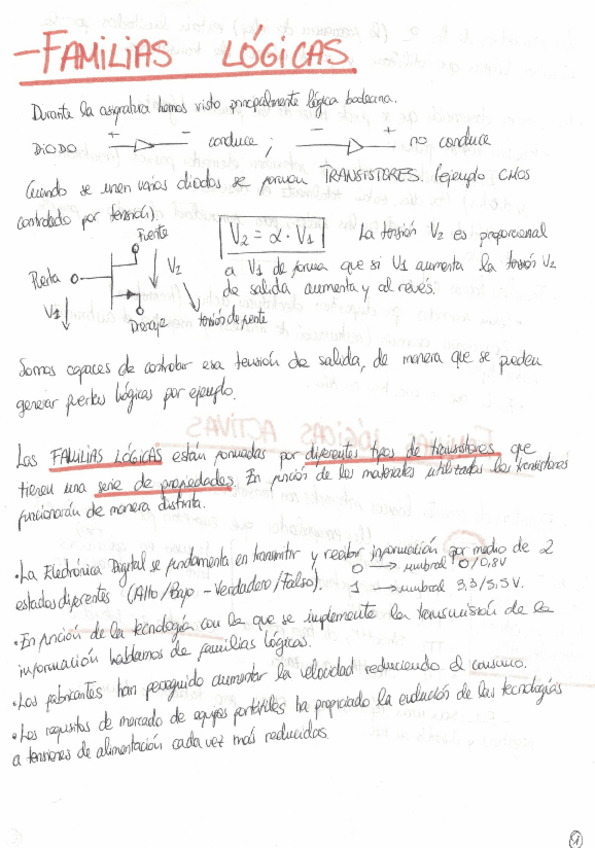 - FAMILIAS LÓGICAS
Durante la asignatura hemos visto principalmente lógica booleana.
DIODO + - conduce ; - + no conduce
Cuando se unen varios diodos se forman TRANSISTORES. (ejemplo CMOS
controlado por tensión).
Fuente
V2 = α · V1
La tensión V2 es proporcional
a V1 de forma que si V1 aumenta la tensión V2
de salida aumenta y al revés.
Puerta
V2
V1
Drenaje
tensión de puente
Somos capaces de controlar esa tensión de salida, de manera que se pueden
generar puertas lógicas por ejemplo.
Las FAMILIAS LÓGICAS están formadas por diferentes tipos de transistores que
tienen una serie de propiedades. En función de los materiales utilizados los transistores
funcionarán de manera distinta.
• La Electrónica Digital se fundamenta en transmitir y recibir información por medio de 2
estados diferentes (Alto/Bajo - Verdadero/Falso).
0 → umbral 0/0,8V
1 → umbral 3,3/5,5V.
• En función de la tecnología con la que se implemente la transmisión de la
información hablamos de familias lógicas.
• Los fabricantes han perseguido aumentar la velocidad reduciendo el consumo.
• Los requisitos de mercado de equipos portátiles ha propiciado la evolución de las tecnologías
a tensiones de alimentación cada vez más reducidas.
1